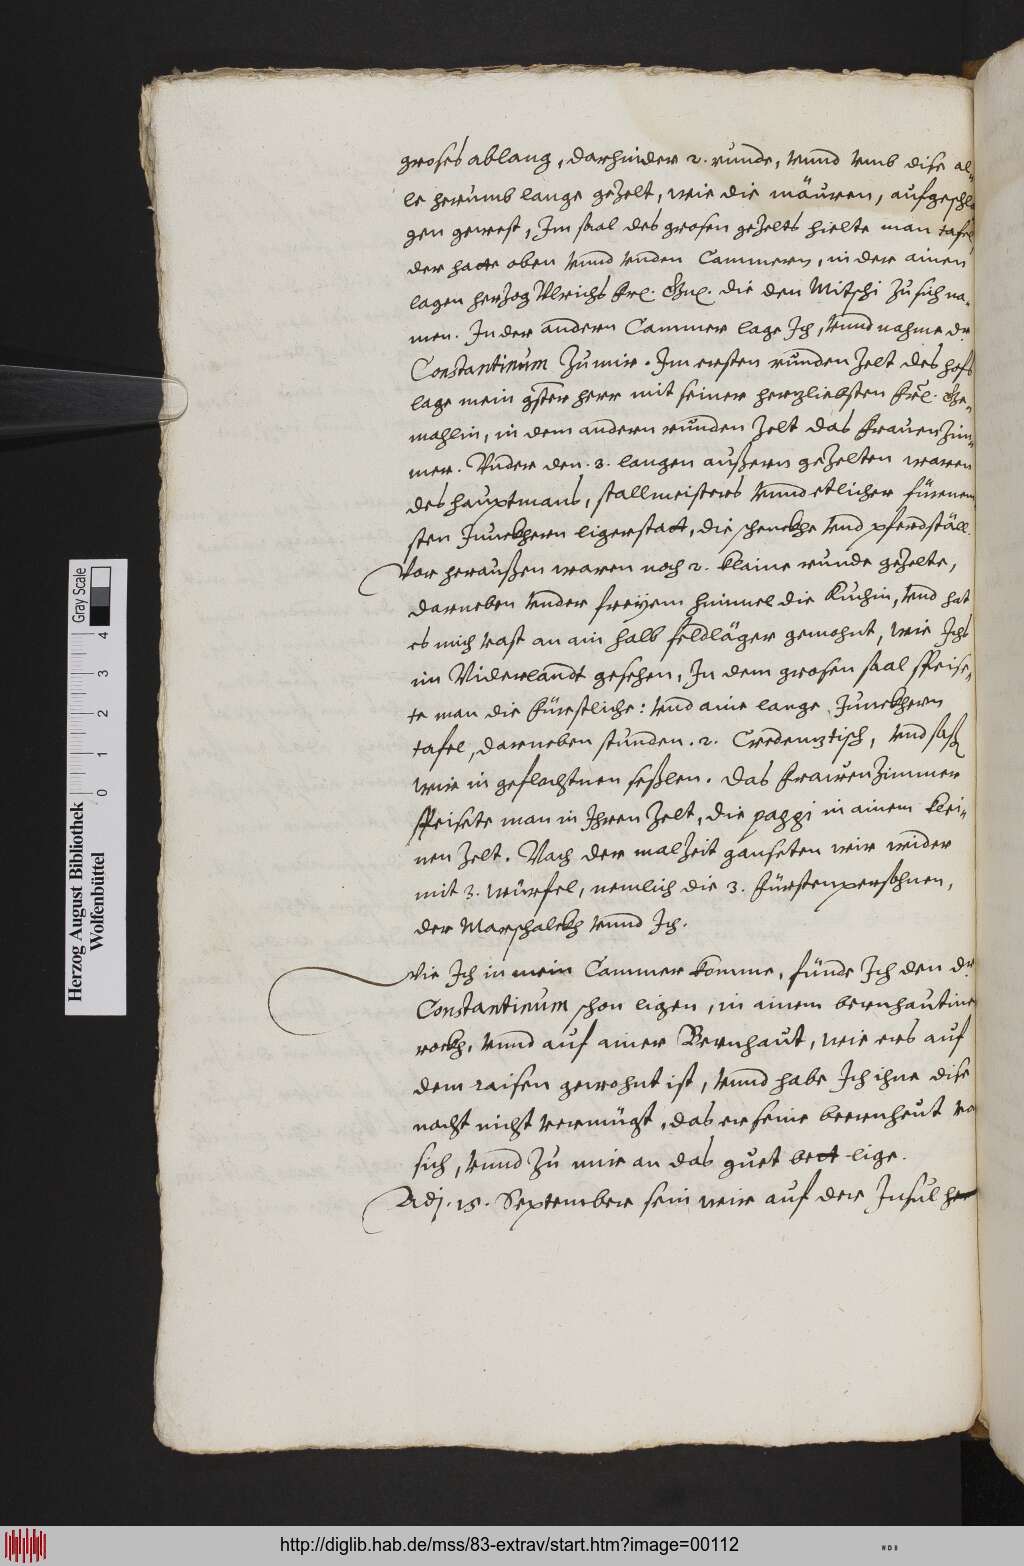 groses ablang, darhinder 2. runde, vnnd vmb dise al-
le herumb lange gezelt, wie die mäuren, aufgeschla
gen gewest, Im saal des grosen gezelts hielte man tafel
der hatte oben vnnd vnden Cammern, in der ainen
lagen herzog Vlrichs frl. Gnl. die den Mitschi zu sich na-
men. In der andern Cammer lage Ich, vnnd nahme dr.
Constantinum zu mir. Im ersten runden zelt des hofs
lage mein gster herr mit seiner herzliebsten frl. Ge-
mahlin, in dem andern runden zelt das frauenzim-
mer. Vnder den .3. langen außern gezelten waren
des hauptmans, stallmeisters vnnd etlicher fürnem
sten Junckhern ligerstatt, die schenckhe vnd pferdställ.
Vor heraußen waren noch 2. klaine runde gezelte,
darneben vnder freyem himmel die Kuchin, vnd hat
es mich vast an ain halb feldläger gemohnt, wie Ichs
im Niderlandt gesehen, In dem grosen saal speise-
te man die fürstliche: vnd aine lange Junckhern
tafel, darneben stunden .2. Credenztisch, vnd saß
wir in geflochtnen seßlen. Das frauenzimmer
speisete man in Ihren zelt, die paggi in ainem klei-
nen zelt. Nach der malzeit ganseten wir wider
mit 3. würfel, nemlich die 3. fürstenpersohnen,
der Marschalckh vnnd Ich.
Wie Ich in mein Cammer komme, fünde Ich den dr.
Constantinum schon ligen, in ainem bernhautine
rockh, vnnd auf ainer Bernhaut, wie ers auf
dem raisen gewohnt ist, vnnd habe Ich ihne dise
nacht nicht vermügt, das er seine beernheut vo
sich, vnnd zu mir an das guet bett lige.
Adj. 15. September sein wir auf der Insul her
Herzog August Bibliothek
Wolfenbüttel
Gray Scale
0 1 2 3 4
http://diglib.hab.de/mss/83-extrav/start.htm?image=00112